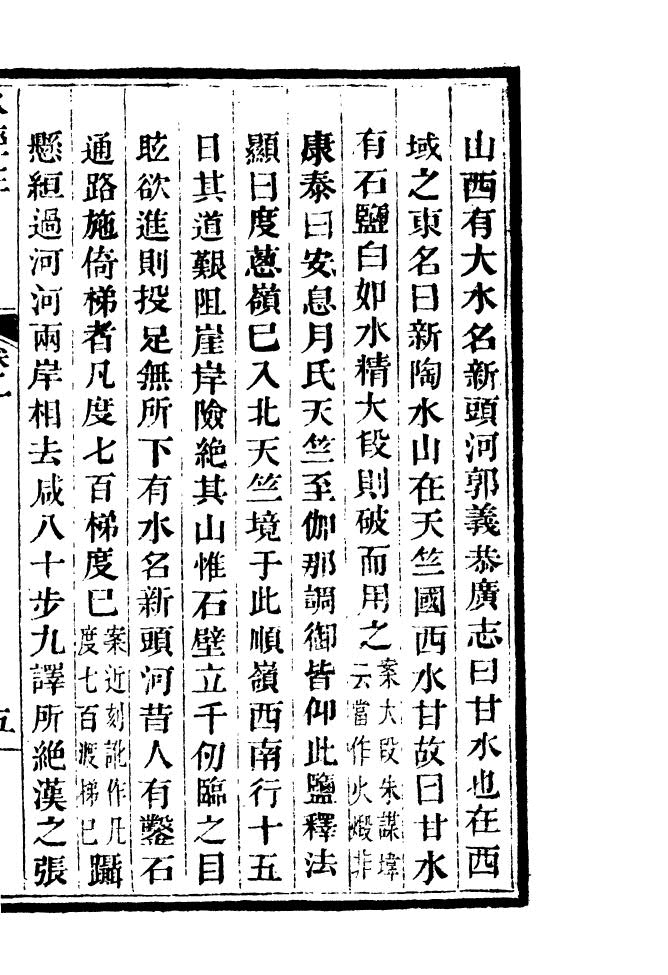 山西有大水名新頭河郭義恭廣志曰甘水也在西
域之東名曰新陶水山在天竺國西水甘故曰甘水
有石鹽白如水精大段則破而用之案大段朱謀㙔云當作火煅非
康泰曰安息月氏天竺至伽那調御皆仰此鹽釋法
顯曰度蔥嶺已入北天竺境于此順嶺西南行十五
日其道艱阻崖岸險絶其山惟石壁立千仞臨之目
眩欲進則投足無所下有水名新頭河昔人有鑿石
通路施倚梯者凡度七百梯度已案近刻訛作凡度七百渡梯已躡
懸絙過河河兩岸相去咸八十步九譯所絶漢之張
五